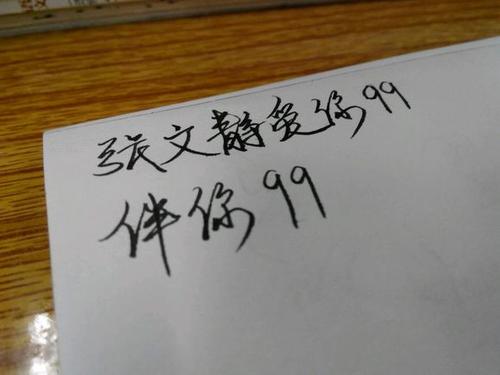 张文静爱你99
伴你99